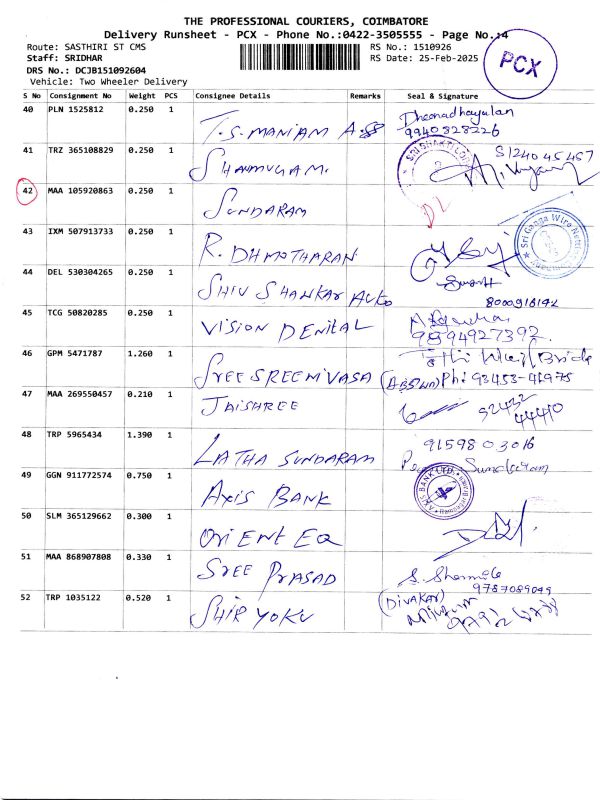 THE PROFESSIONAL COURIERS, COIMBATORE
Delivery Runsheet - PCX - Phone No.:0422-3505555 - Page No.:4
Route: SASTHIRI ST CMS
RS No.: 1510926
Staff: SRIDHAR
RS Date: 25-Feb-2025
DRS No.: DCJB151092604
Vehicle: Two Wheeler Delivery
PCX
S No Consignment No Weight PCS Consignee Details Remarks Seal & Signature
40 PLN 1525812 0.250 1 T.S. MANIAM Dheenadhayalan
9940828226
41 TRZ 365108829 0.250 1 SHANMUGAM. SRI SHAKTI
42 MAA 105920863 0.250 1 SUNDARAM DL
43 IXM 507913733 0.250 1 R. DHMOTHARAN Sri Ganga Wire Netting
44 DEL 530304265 0.250 1 SHIV SHANKAR AUTO
45 TCG 50820285 0.250 1 VISION DENTAL
9894927392
46 GPM 5471787 1.260 1 SREE SREENIVASA Ph: 93453-41975
47 MAA 269550457 0.210 1 JAISHREE
48 TRP 5965434 1.390 1 LATHA SUNDARAM 9159803016
49 GGN 911772574 0.750 1 AXIS BANK AXIS BANK LTD.
50 SLM 365129662 0.300 1 ORIENT EQ
51 MAA 868907808 0.330 1 SREE PRASAD
9787089049
52 TRP 1035122 0.520 1 SHIR YOKU (DIVAKAR)